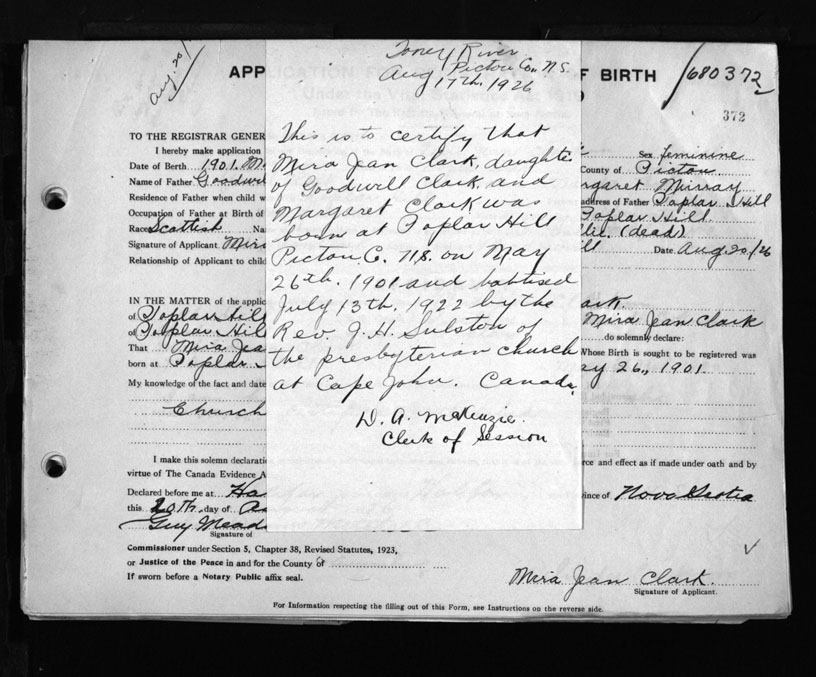 Aug. 20
Toney River
Pictou Co. N.S.
Aug 17th, 1926
This is to certify that
Mira Jean Clark, daughter
of Goodwill Clark, and
Margaret Clark was
born at Poplar Hill
Pictou C. N.S. on May
26th. 1901 and babtised
July 13th. 1922 by the
Rev. J. H. Sulston of
the presbyterian church
at Cape John. Canada,
D. A. McKenzie.
Clerk of Session
APP
OF BIRTH
680372
372
TO THE REGISTRAR GENER
I hereby make application
Sex feminine
Date of Birth 1901. M
County of Pictou
Name of Father Goodwil
rgaret Murray
Residence of Father when child w
address of Father Poplar Hill
Occupation of Father at Birth of
Poplar Hill.
Race Scottish Na
(dead)
Signature of Applicant. Mira
Date Aug 20/26
Relationship of Applicant to child
IN THE MATTER of the applic
ark.
of Poplar Hill
Mira Jean Clark
of Poplar Hil
do solemnly declare:
That Mira Jea
Whose Birth is sought to be registered was
born at Poplar
ay 26, 1901.
My knowledge of the fact and date
Church
I make this solemn declaratio
rce and effect as if made under oath and by
virtue of The Canada Evidence A
Declared before me at Ha
vince of Nova Scotia
this 20th day of
Guy Mead
Signature of
Commissioner under Section 5, Chapter 38, Revised Statutes, 1923,
or Justice of the Peace in and for the County of
If sworn before a Notary Public affix seal.
Mira Jean Clark.
Signature of Applicant.
For Information respecting the filling out of this Form, see Instructions on the reverse side.